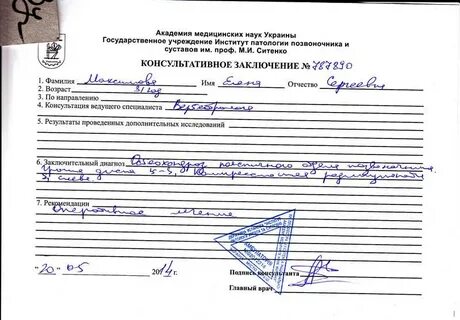 Академия медицинских наук Украины
Государственное учреждение Институт патологии позвоночника и
суставов им. проф. М.И. Ситенко
КОНСУЛЬТАТИВНОЕ ЗАКЛЮЧЕНИЕ № 787890
1. Фамилия Максимова Имя Елена Отчество Сергеевна
2. Возраст 31 год
3. По направлению
4. Консультация ведущего специалиста Вертебролога
5. Результаты проведенных дополнительных исследований
6. Заключительный диагноз Остеохондроз поясничного отдела позвоночника.
Грыжа диска Компрессионная
слева.
7. Рекомендации
Оперативное лечение
"20" 05 2014 г. Подпись консультанта
Главный врач